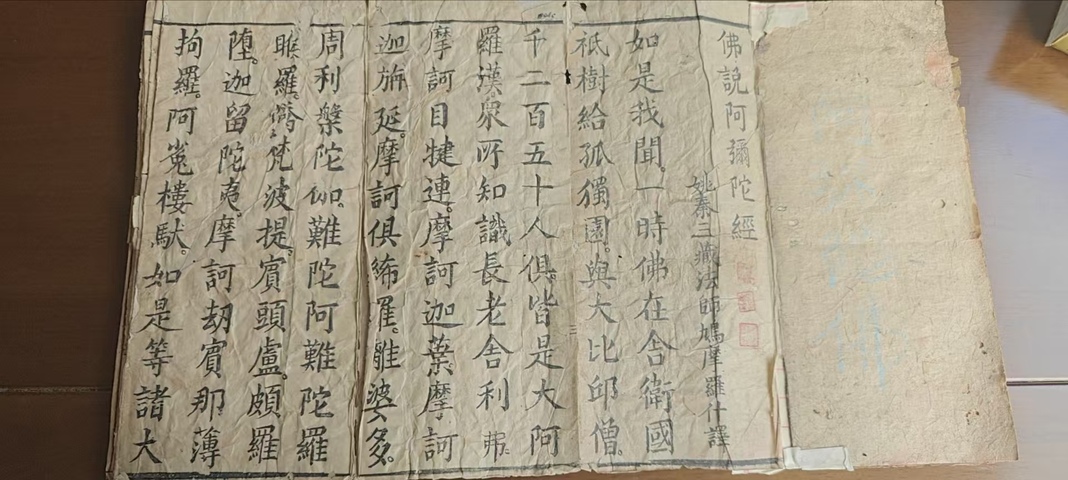 佛說阿彌陀經
姚秦三藏法師鳩摩羅什譯
如是我聞。一時佛在舍衛國
祇樹給孤獨園。與大比邱僧。
千二百五十人俱。皆是大阿
羅漢。衆所知識長老舍利弗
摩訶目犍連。摩訶迦葉。摩訶
迦旃延。摩訶俱絺羅。離婆多。
周利槃陀伽。難陀阿難陀羅
睺羅。憍梵波提。賓頭盧。頗羅
堕。迦留陀夷。摩訶劫賓那薄
拘羅。阿㝹樓馱。如是等諸大